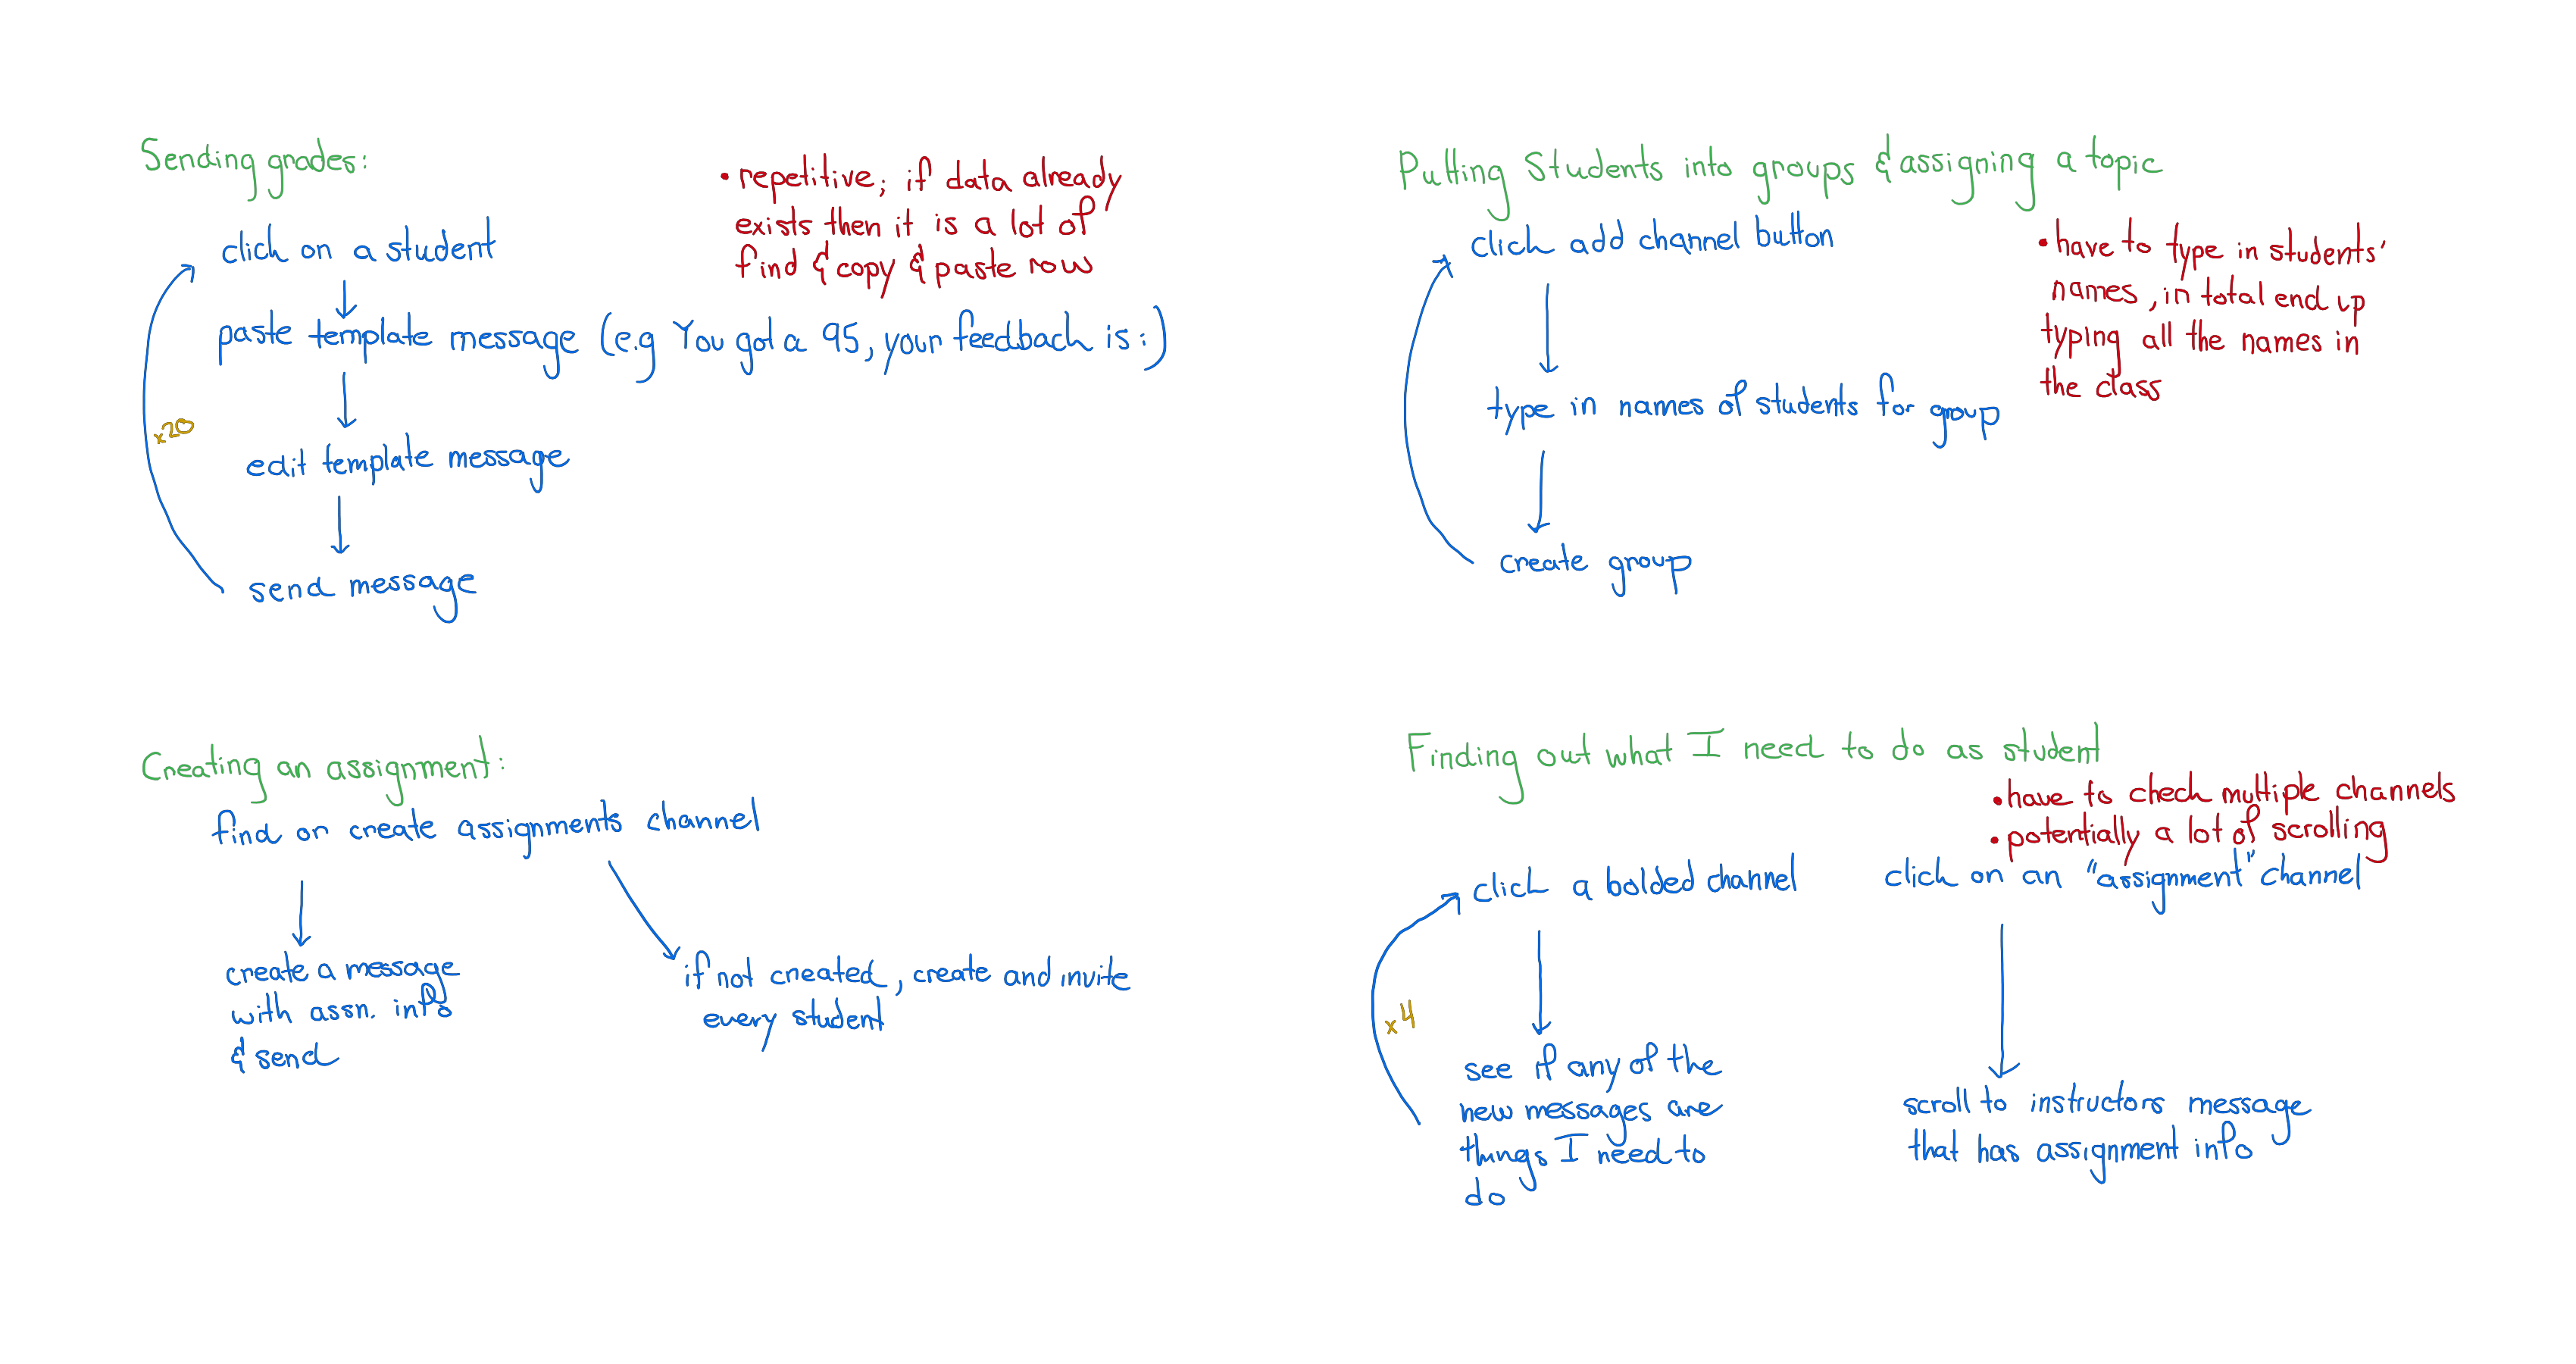 Sending grades:
click on a student
• repetitive; if data already
exists then it is a lot of
find & copy & paste row
paste template message (e.g You got a 95, your feedback is:)
x20
edit template message
send message
Putting Students into groups & assigning a topic
click add channel button
• have to type in students'
names, in total end up
typing all the names in
the class
type in names of students for group
create group
Creating an assignment:
find or create assignments channel
create a message
with assn. info
& send
if not created, create and invite
every student
Finding out what I need to do as student
• have to check multiple channels
• potentially a lot of scrolling
click a bolded channel
x4
see if any of the
new messages are
things I need to
do
click on an "assignment" channel
scroll to instructors message
that has assignment info